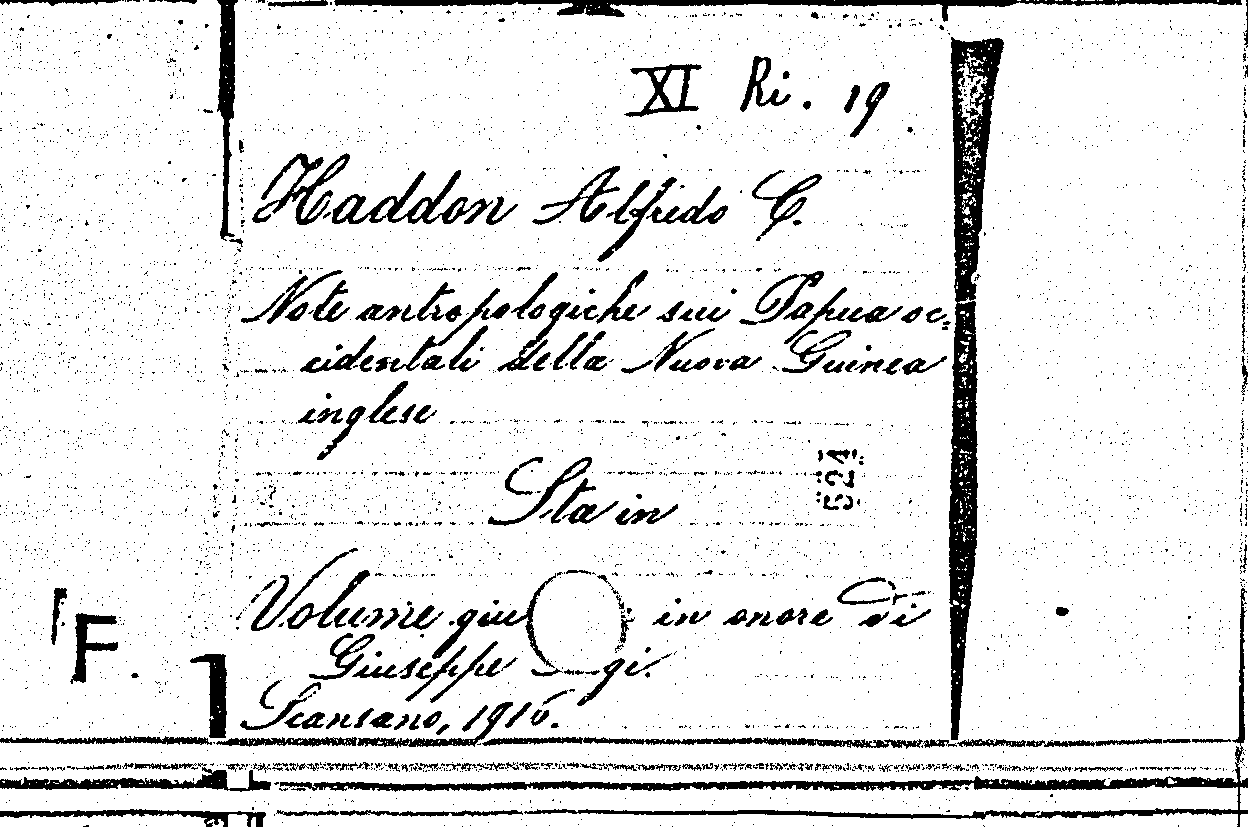 XI Ri. 19
Haddon Alfredo C.
Note antropologiche sui Papua oc=
cidentali della Nuova Guinea
inglese
524
Sta in
Volume giu in onore di
Giuseppe gi.
Scansano, 1916.
F.